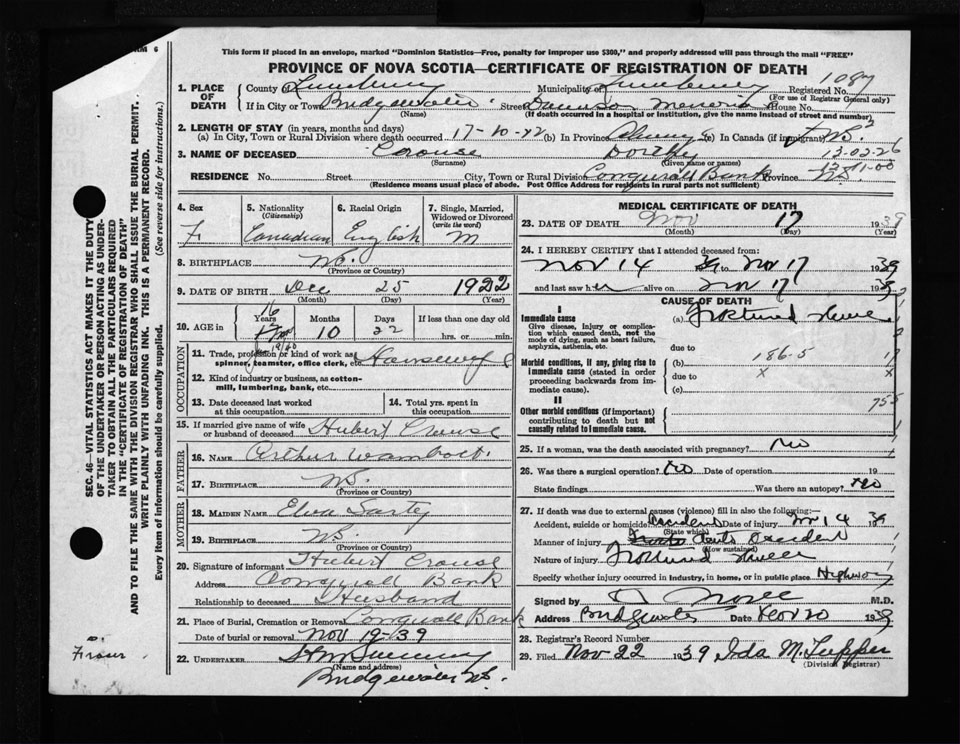 RM 6
This form if placed in an envelope, marked "Dominion Statistics—Free, penalty for improper use $300," and properly addressed will pass through the mail "FREE"
PROVINCE OF NOVA SCOTIA—CERTIFICATE OF REGISTRATION OF DEATH
1087
1. PLACE OF DEATH County of Lunenburg Municipality of Lunenburg Registered No. (For use of Registrar General only)
If in City or Town Bridgewater (Name) Street Dawson Memorial House No.
(If death occurred in a hospital or institution, give the name instead of street and number)
2. LENGTH OF STAY (in years, months and days)
(a) In City, Town or Rural Division where death occurred 17-10-22 (b) In Province (c) In Canada (if immigrant)
3. NAME OF DECEASED Crouse (Surname) Dorothy (Given name or names) 13-02-26
RESIDENCE No. Street City, Town or Rural Division Conquerall Bank Province N.S.
(Residence means usual place of abode. Post Office Address for residents in rural parts not sufficient)
4. Sex F
5. Nationality (Citizenship) Canadian
6. Racial Origin English
7. Single, Married, Widowed or Divorced (write the word) M
8. BIRTHPLACE N.S. (Province or County)
9. DATE OF BIRTH Dec (Month) 25 (Day) 1922 (Year)
10. AGE in 16 Years Months 10 Days 22 If less than one day hrs. or min.
OCCUPATION
11. Trade, profession or kind of work as spinner, teamster, office clerk, etc. Housewife
12. Kind of industry or business, as cotton-mill, lumbering, bank, etc.
13. Date deceased last worked at this occupation
14. Total yrs. spent in this occupation
15. If married give name of wife or husband of deceased Hubert Crouse
FATHER
16. NAME Arthur Wambolt
17. BIRTHPLACE N.S. (Province or Country)
MOTHER
18. MAIDEN NAME Elva
19. BIRTHPLACE N.S. (Province or Country)
20. Signature of informant Hubert Crouse
Address Conquerall Bank
Relationship to deceased Husband
21. Place of Burial, Cremation or Removal Conquerall Bank
Date of burial or removal Nov 19-39
22. UNDERTAKER
Bridgewater N.S.
MEDICAL CERTIFICATE OF DEATH
23. DATE OF DEATH Nov (Month) 17 (Day) 1939 (Year)
24. I HEREBY CERTIFY that I attended deceased from:
Nov 14 39 to Nov 17 1939
and last saw her alive on Nov 17 1939
CAUSE OF DEATH
Immediate cause (a) Fractured Skull
Give disease, injury or complication which caused death, not the mode of dying, such as heart failure, asphyxia, asthenia, etc.
due to
Morbid conditions, if any, giving rise to immediate cause (stated in order proceeding backwards from immediate cause).
(b) 186-5
due to x x
(c)
II
Other morbid conditions (if important) contributing to death but not causally related to immediate cause.
25. If a woman, was the death associated with pregnancy? No
26. Was there a surgical operation? No Date of operation 19
State findings Was there an autopsy? No
27. If death was due to external causes (violence) fill in also the following:—
Accident, suicide or homicide Accident (State which) Date of injury Nov 14 1939
Manner of injury Auto Accident (How sustained)
Nature of injury Fractured Skull
Specify whether injury occurred in industry, in home, or in public place Highway
Signed by M.D.
Address Bridgewater Date Nov 20 1939
28. Registrar's Record Number
29. Filed Nov 22 1939 Ida M. Tupper (Division Registrar)
SEC. 46—VITAL STATISTICS ACT MAKES IT THE DUTY OF THE UNDERTAKER OR PERSON ACTING AS UNDERTAKER TO OBTAIN ALL THE PARTICULARS REQUIRED IN THE "CERTIFICATE OF REGISTRATION OF DEATH" AND TO FILE THE SAME WITH THE DIVISION REGISTRAR WHO SHALL ISSUE THE BURIAL PERMIT.
WRITE PLAINLY WITH UNFADING INK. THIS IS A PERMANENT RECORD.
Every item of information should be carefully supplied. (See reverse side for instructions.)